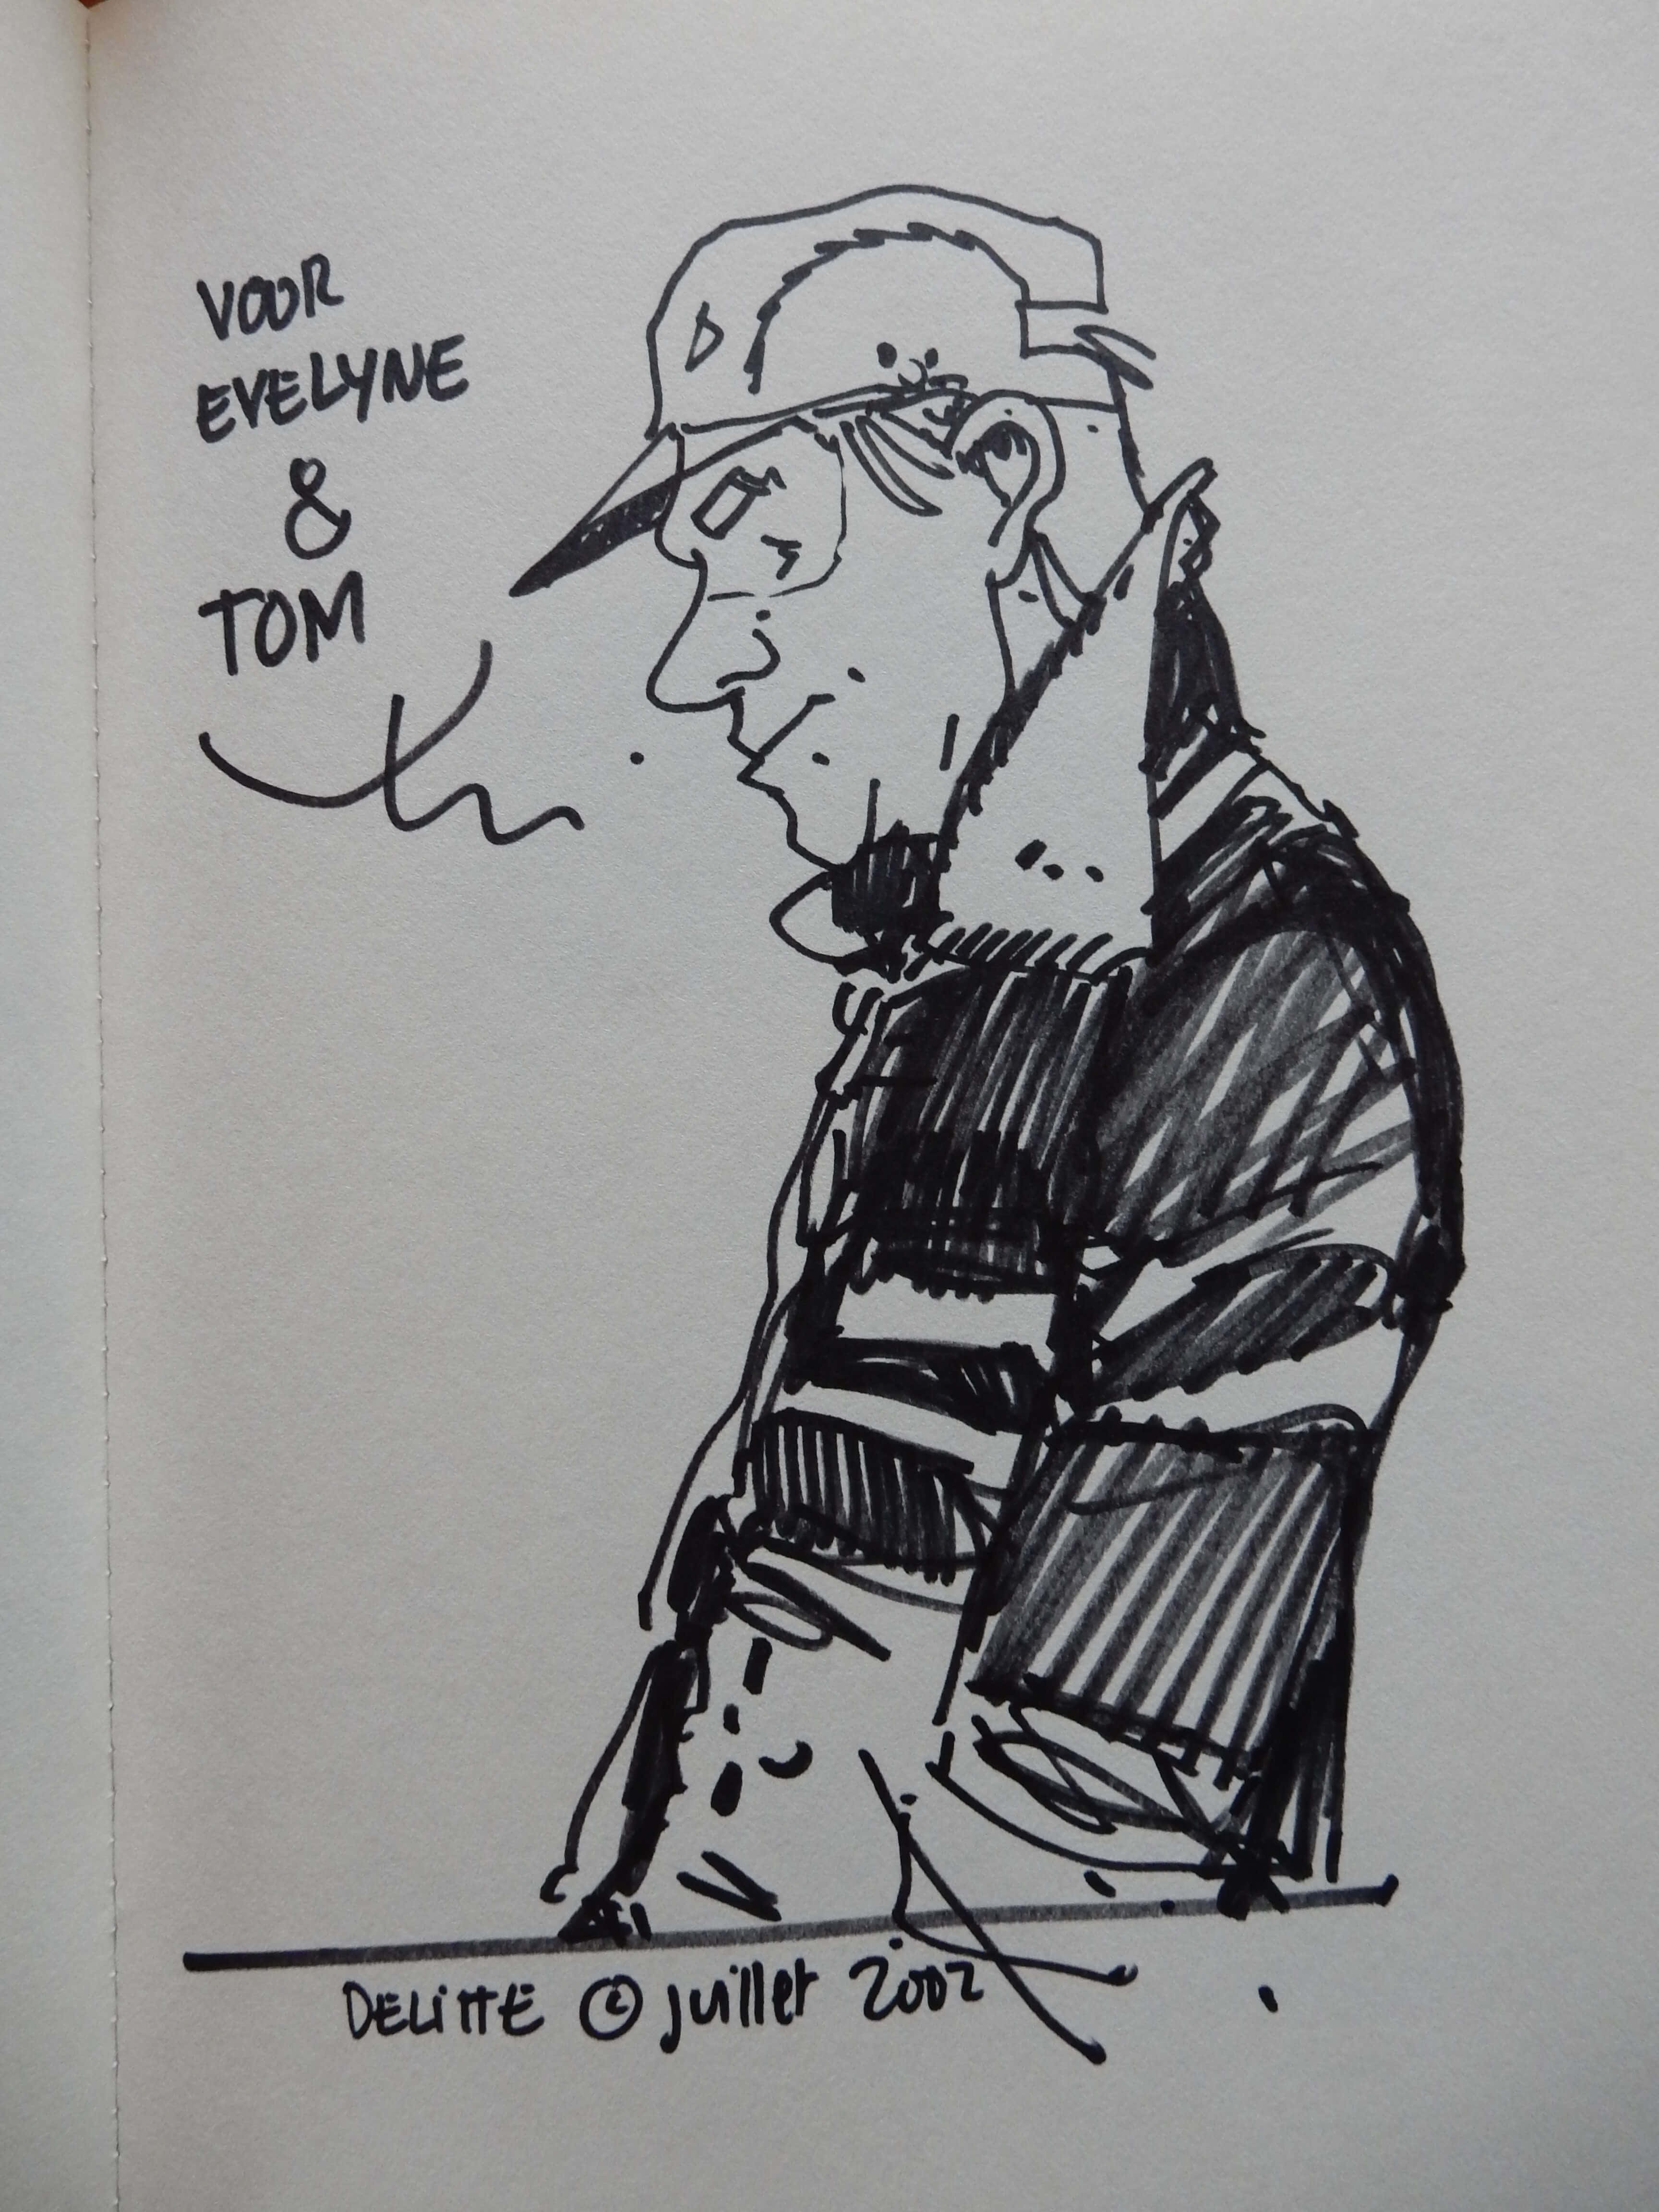 VOOR
EVELYNE
&
TOM
DELITTE © juillet 2002